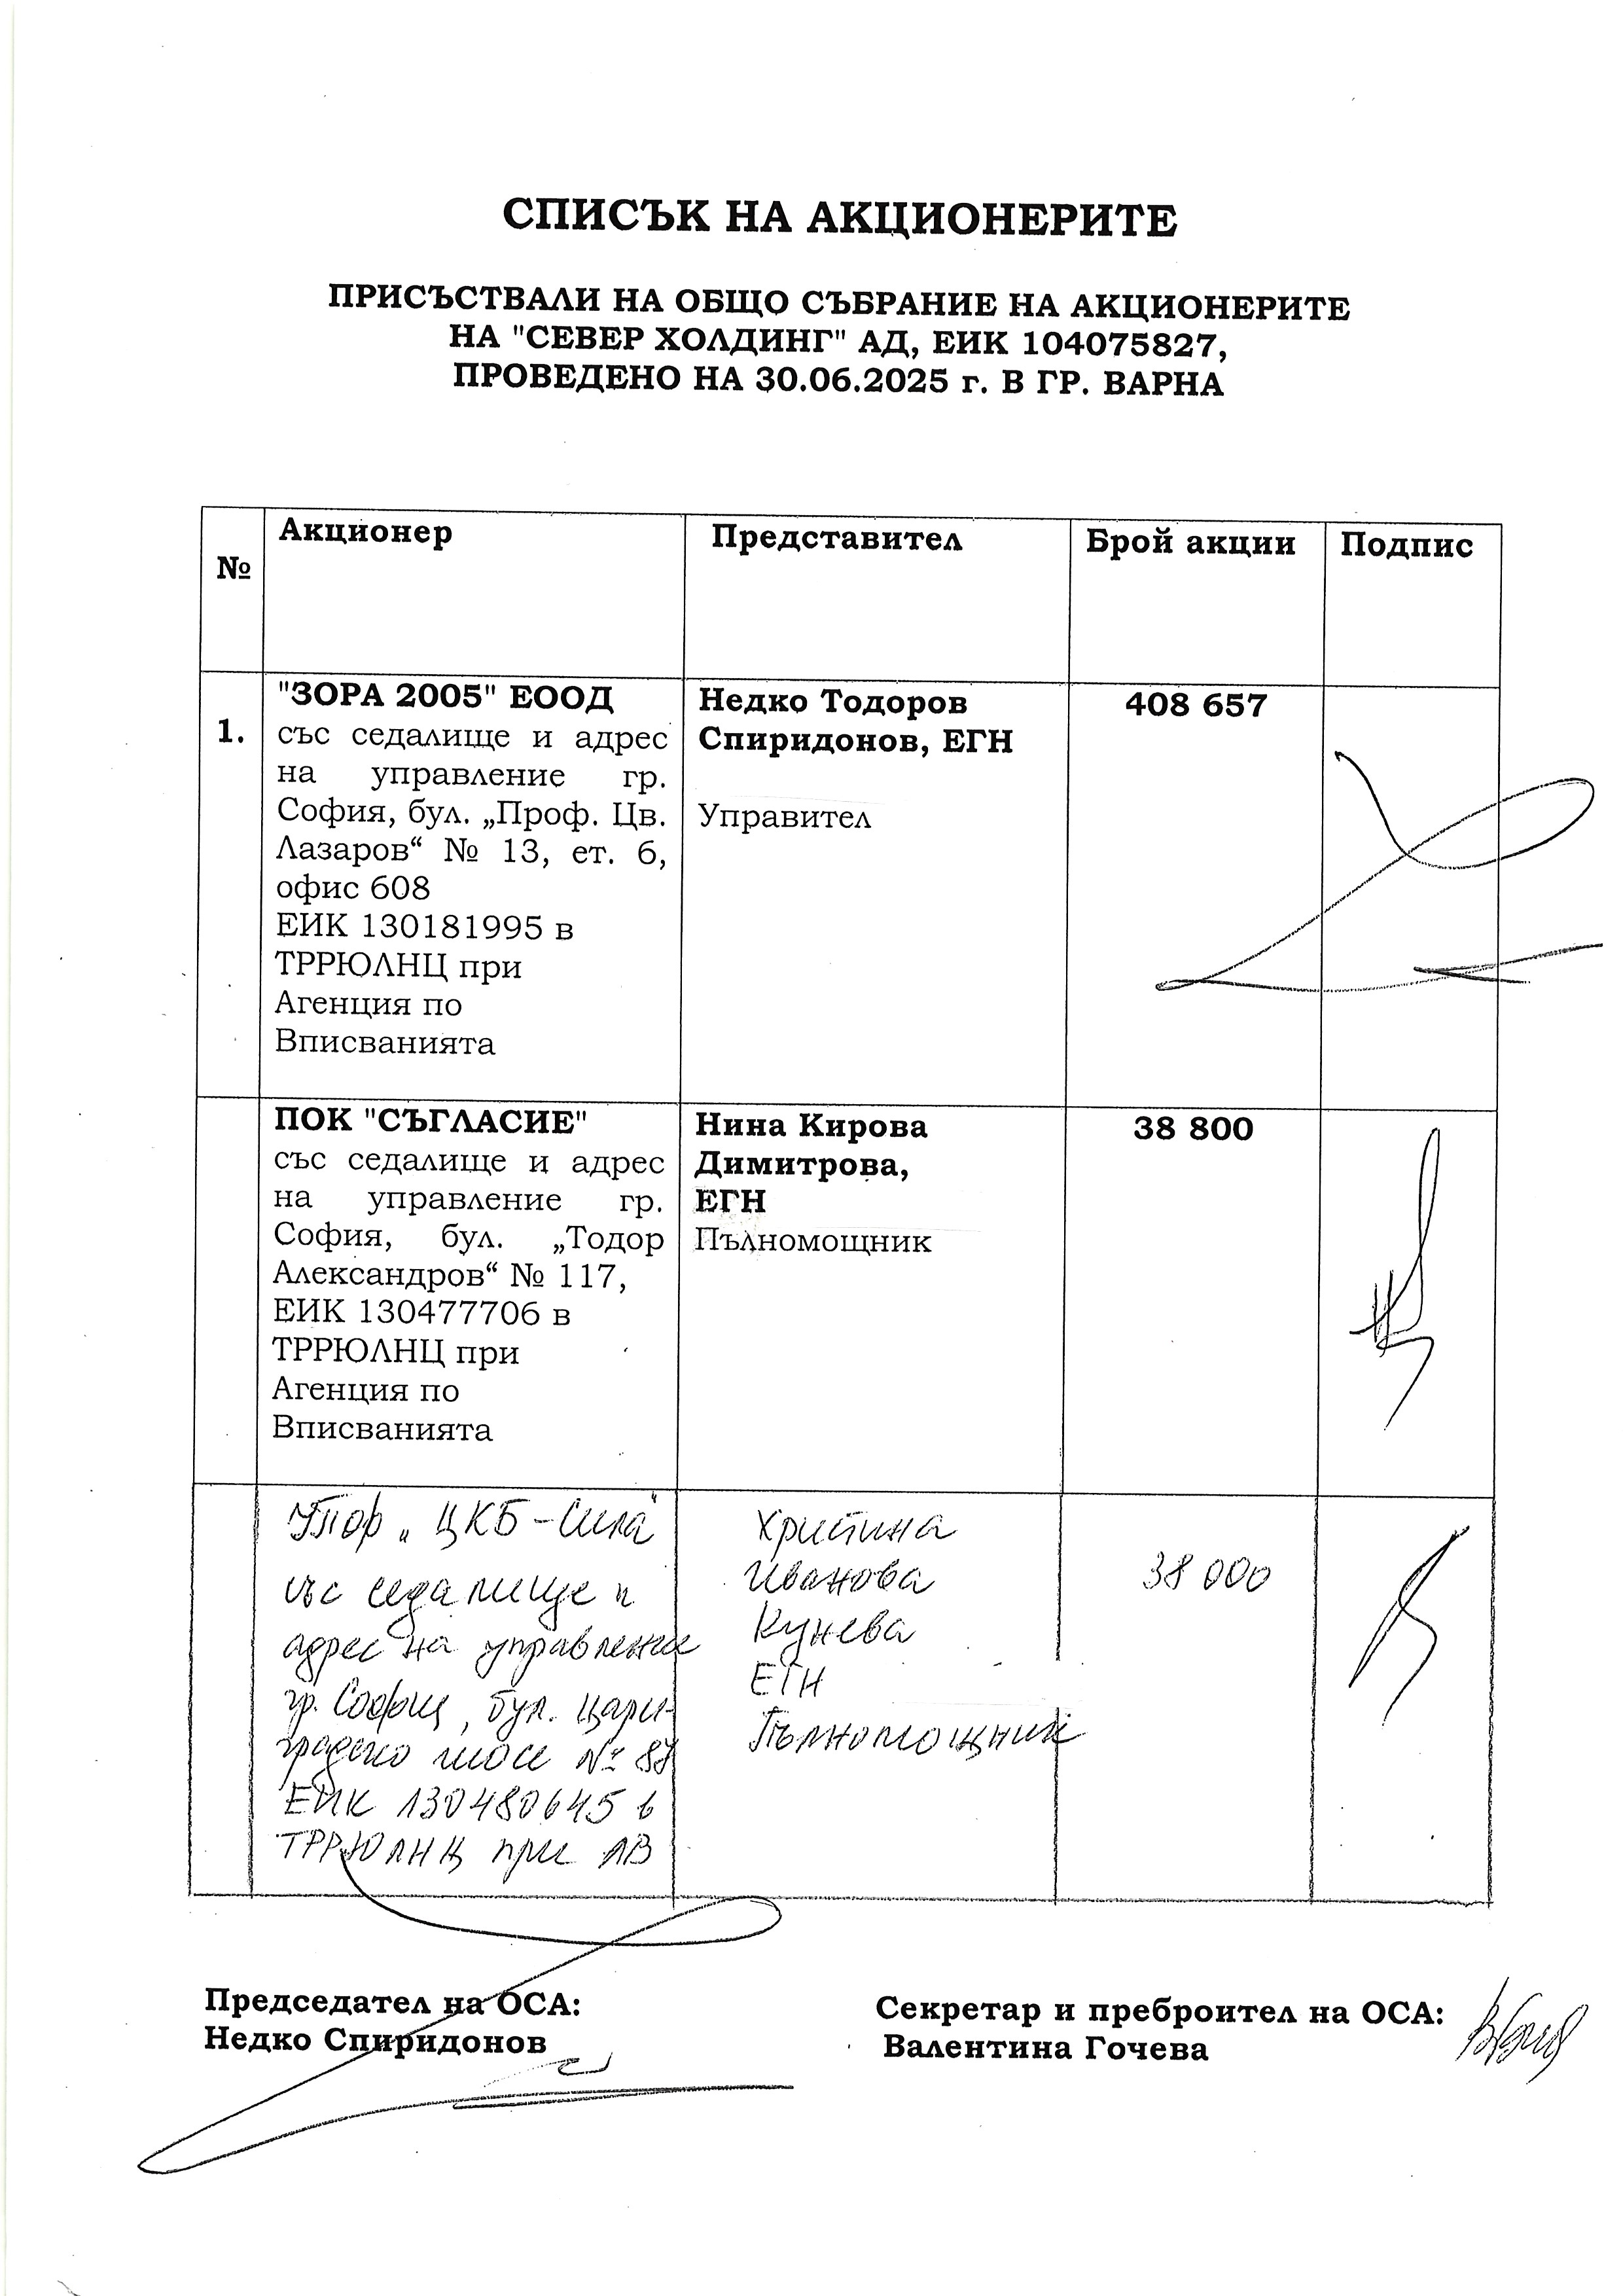 СПИСЪК НА АКЦИОНЕРИТЕ
ПРИСЪСТВАЛИ НА ОБЩО СЪБРАНИЕ НА АКЦИОНЕРИТЕ
НА "СЕВЕР ХОЛДИНГ" АД, ЕИК 104075827,
ПРОВЕДЕНО НА 30.06.2025 г. В ГР. ВАРНА
№
Акционер
Представител
Брой акции
Подпис
1.
"ЗОРА 2005" ЕООД
със седалище и адрес
на управление гр.
София, бул. „Проф. Цв.
Лазаров“ № 13, ет. 6,
офис 608
ЕИК 130181995 в
ТРРЮЛНЦ при
Агенция по
Вписванията
Недко Тодоров
Спиридонов, ЕГН
Управител
408 657
ПОК "СЪГЛАСИЕ"
със седалище и адрес
на управление гр.
София, бул. „Тодор
Александров“ № 117,
ЕИК 130477706 в
ТРРЮЛНЦ при
Агенция по
Вписванията
Нина Кирова
Димитрова,
ЕГН
Пълномощник
38 800
„ЦКБ-Сила"
със седалище и
адрес на управление
гр. София, бул. Цари-
градско шосе № 87
ЕИК 130480645 в
ТРРЮЛНЦ при АВ
Христина
Иванова
Кунева
ЕГН
Пълномощник
38 000
Председател на ОСА:
Недко Спиридонов
Секретар и преброител на ОСА:
Валентина Гочева